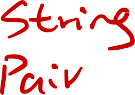 String
Pair